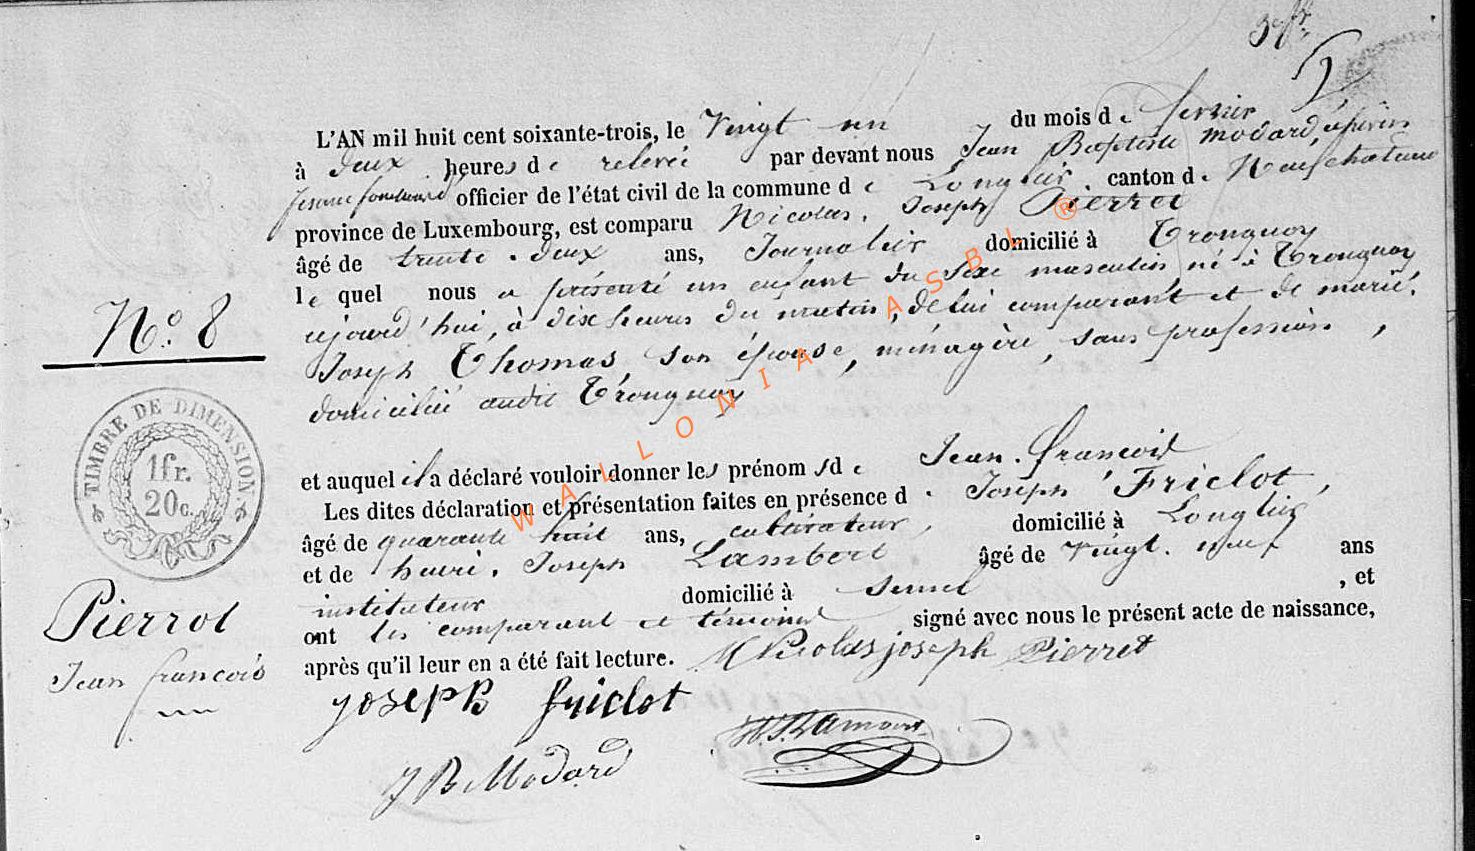 L'AN mil huit cent soixante-trois, le Vingt un du mois de fevrier
à deux heures de relevée par devant nous Jean Baptiste Modard, échevin
officier de l'état civil de la commune de Longlier, canton de Neufchateau
province de Luxembourg, est comparu Nicolas, Joseph Pierret
âgé de trente-deux ans, Journalier domicilié à Tronquoy
le quel nous a présenté un enfant du sexe masculin né à Tronquoy
ujourd'hui, à dix heures du matin, de lui comparant et de marie,
Joseph Thomas, son épouse, ménagère, sans profession,
domiciliée audit Tronquoy
et auquel il a déclaré vouloir donner les prénoms de Jean-françois
Les dites déclaration et présentation faites en présence d. Joseph Friclot,
âgé de quarante huit ans, cultivateur, domicilié à Longlier
et de henri, Joseph Lambert âgé de vingt-neuf ans
instituteur domicilié à Semel, et
ont les comparant et témoins signé avec nous le présent acte de naissance,
après qu'il leur en a été fait lecture. Nicolas joseph Pierret
joseph friclot
J B Modard
No. 8
TIMBRE DE DIMENSION
1fr.
20c.
Pierrot
Jean françois
WALLONIA ASBL ®